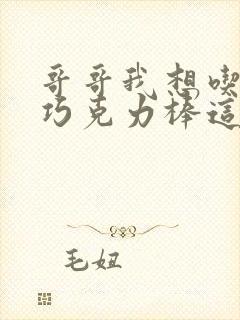 哥哥我想喫
巧克力棒這
毛妞